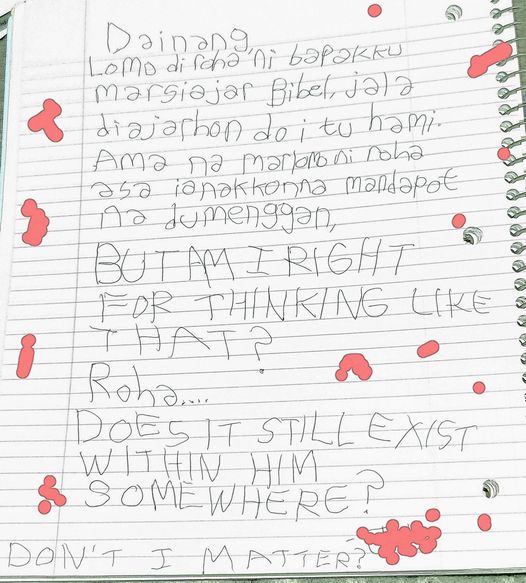 Dainang,
Lomo di roha ni bapakku
marsiajar Bibel, jala
diajarhon do i tu hami.
Ama na marlomo ni roha
asa ianakkonna mandapot
na dumenggan,
BUT AM I RIGHT
FOR THINKING LIKE
THAT?
Roha....
DOES IT STILL EXIST
WITHIN HIM
SOMEWHERE?
DON'T I MATTER?